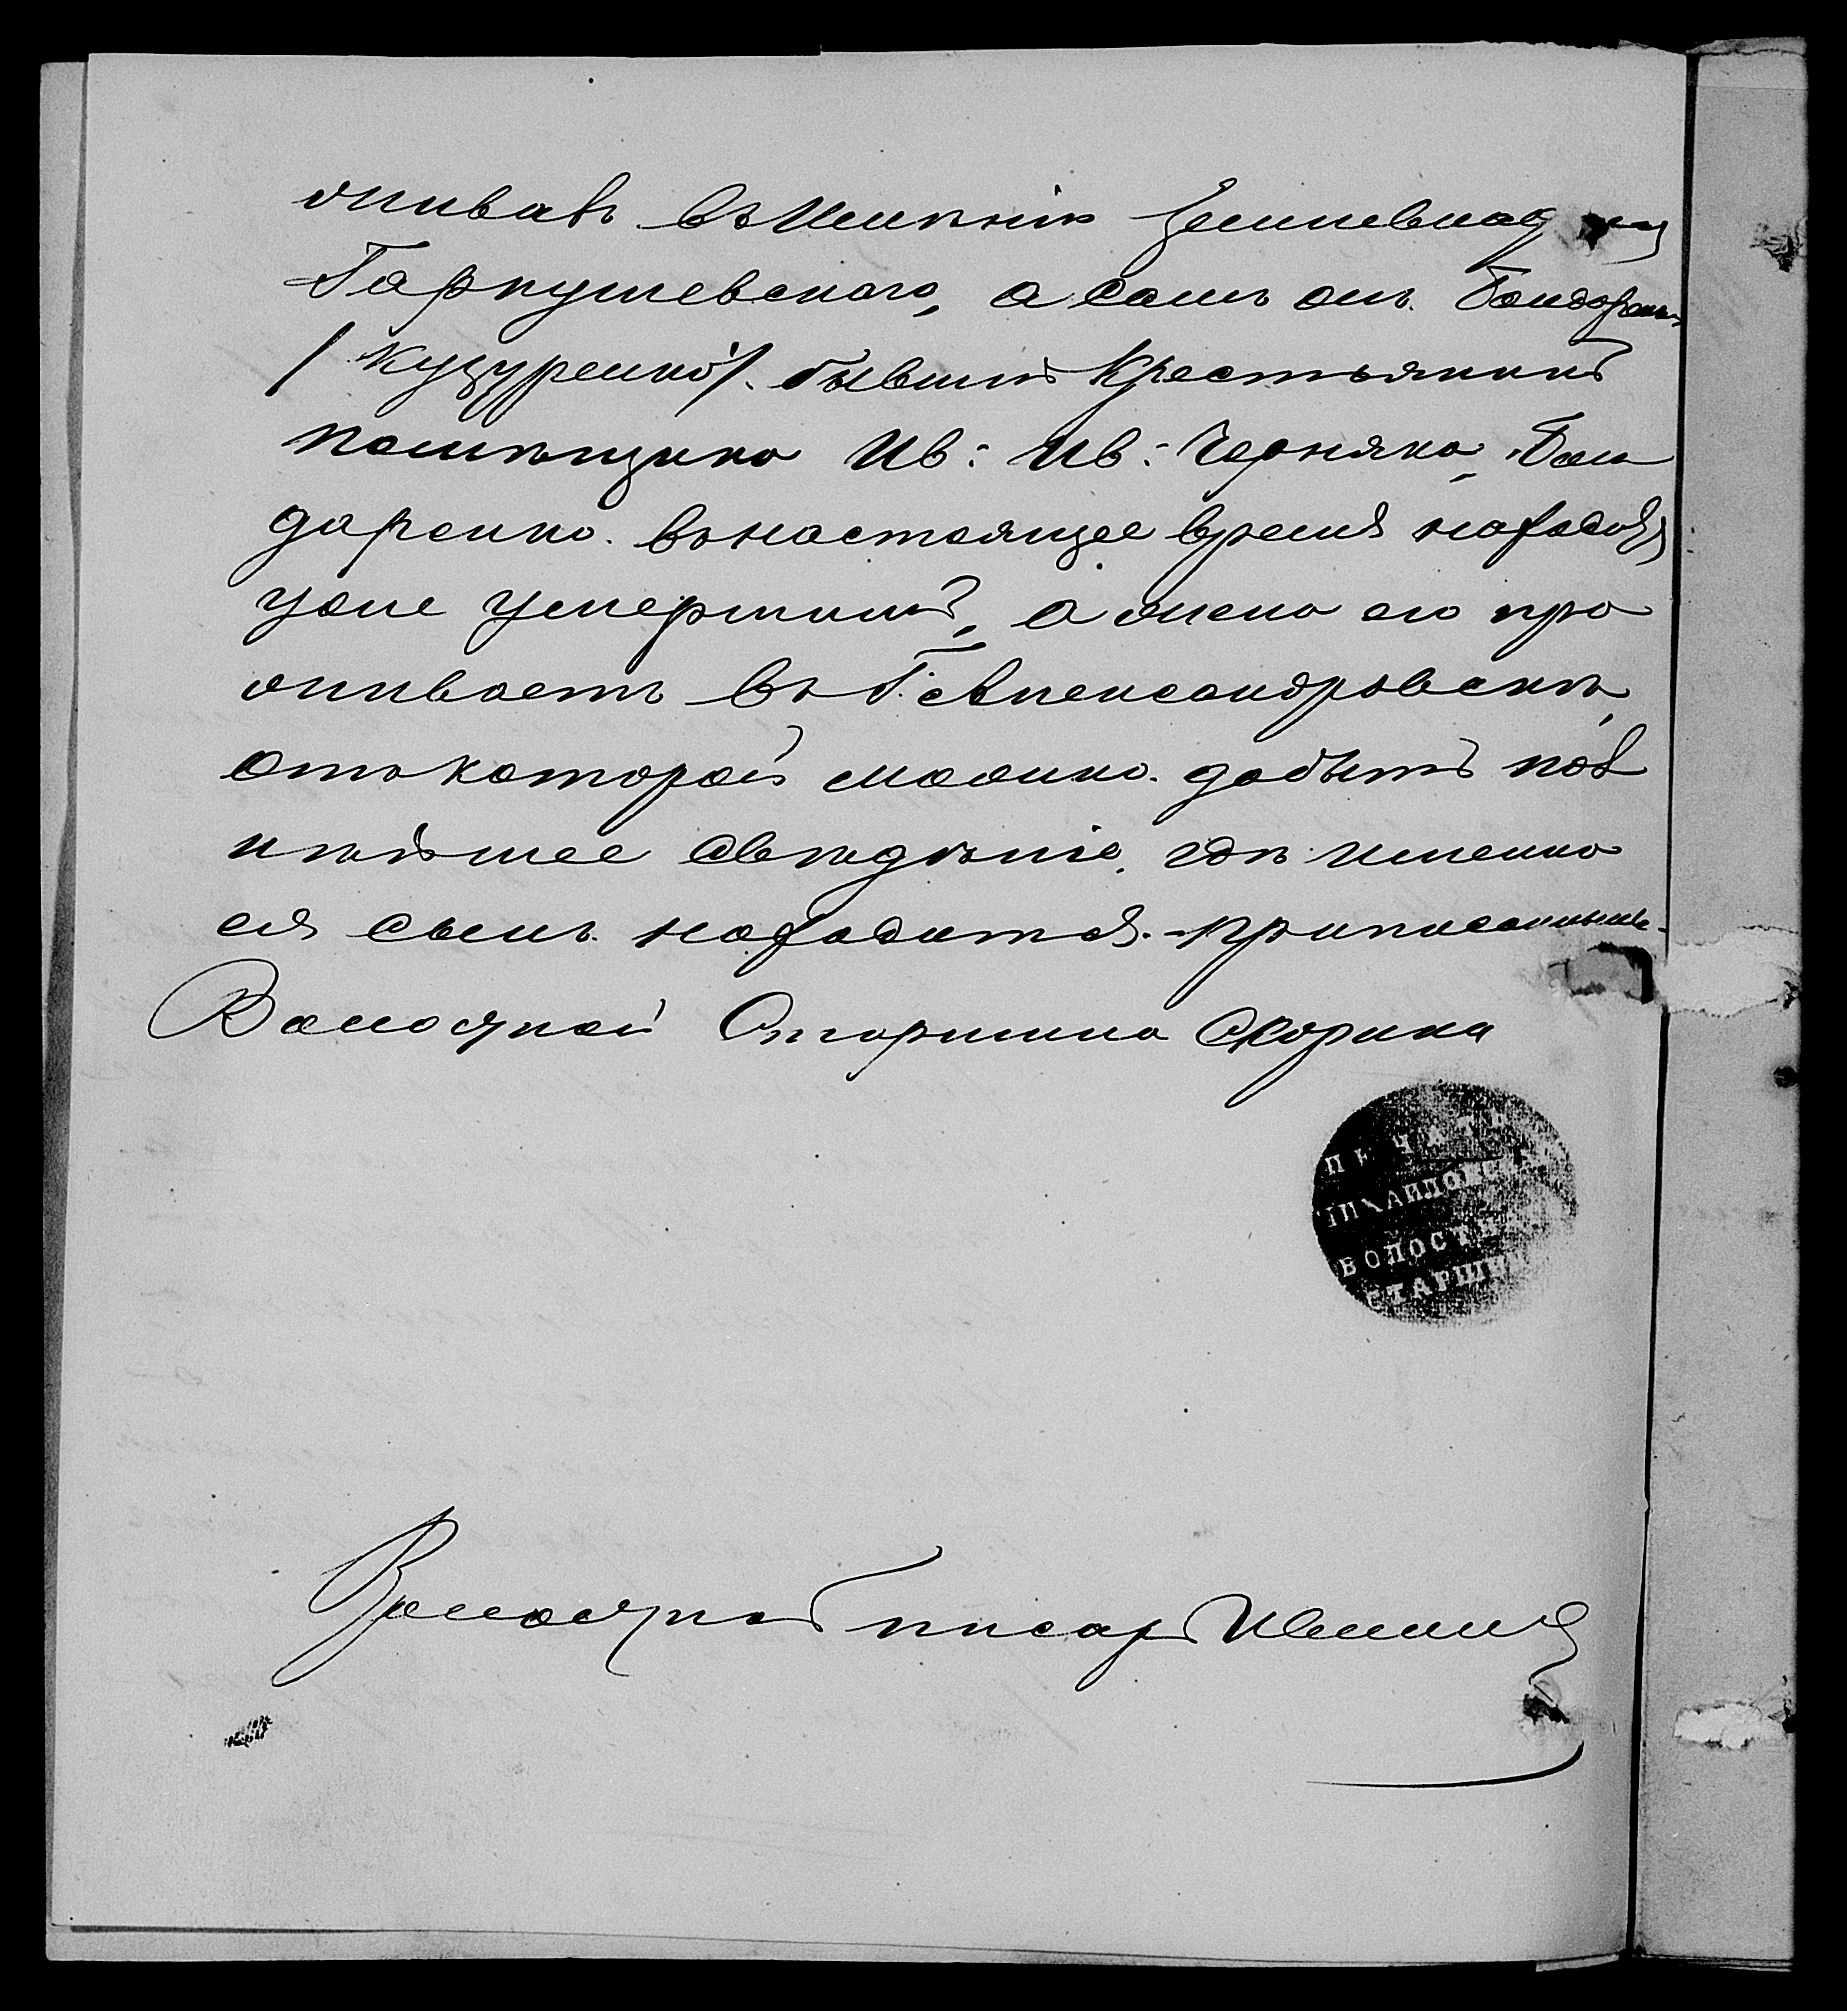 живавъ въ имѣніи Землевладѣль
Гаркушевскаго, а самъ онъ Бондарен
/Куцуренко/ бывшій Крестьянинъ
помѣщика Ив: Ив: Черняка, Бон
даренко въ настоящее время находит
уже умершимъ, а жена его про
живаетъ въ Г. Александровскѣ,
отъ которой можно добыть поз
нѣйшее свѣдѣніе, гдѣ именно
ея сынъ находится приписаннымъ
Волостной Старшина Скорина
ПЕЧАТЬ
МИХАЙЛОВСКАГО
ВОЛОСТН
СТАРШИН
Волостной писарь